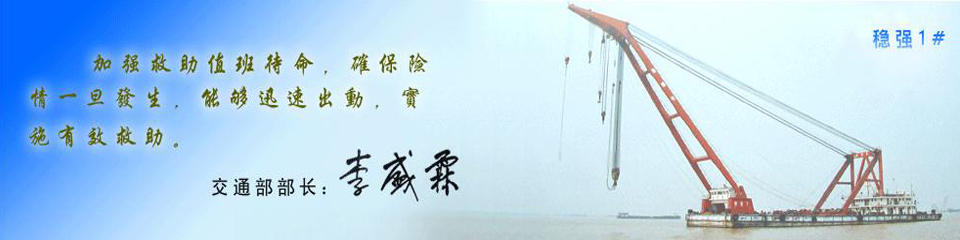 加强救助值班待命，確保險
情一旦發生，能够迅速出動，實
施有效救助。
交通部部长：李盛霖
稳强1#